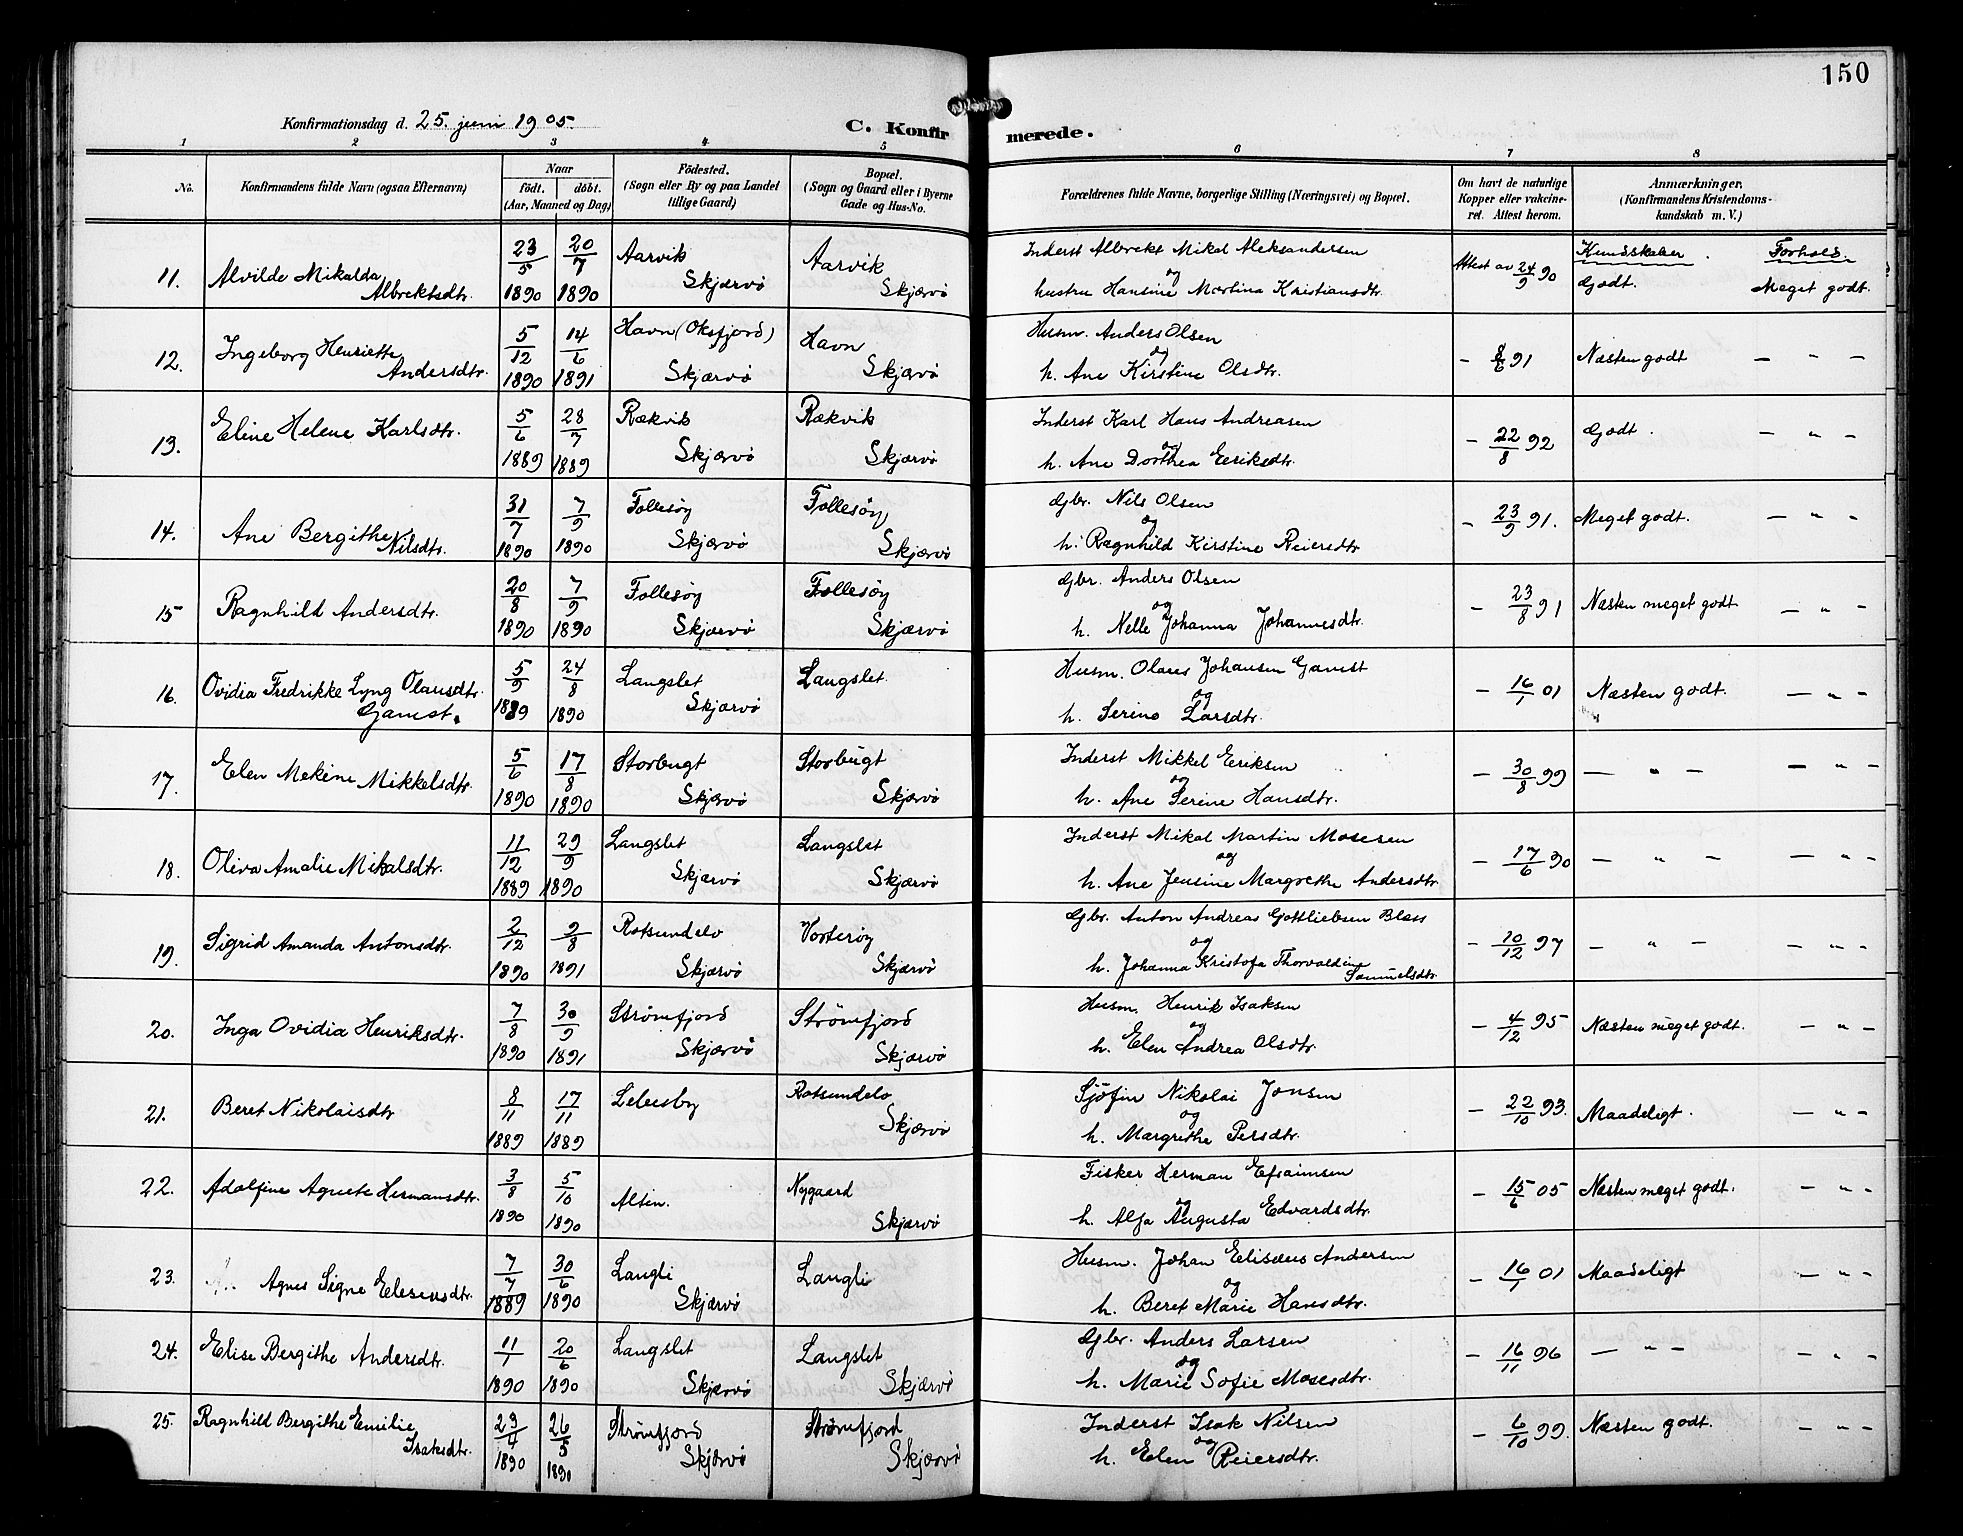 150
Konfirmationsdag d. 25. juni 1905.
C. Konfirmerede.
1 2 3 4 5 6 7 8
No.
Konfirmandens fulde Navn (ogsaa Efternavn)
Naar
født. døbt.
(Aar, Maaned og Dag)
Födested.
(Sogn eller By og paa Landet
tillige Gaard)
Bopæl.
(Sogn og Gaard eller i Byerne
Gade og Hus-No.
Forældrenes fulde Navne, borgerlige Stilling (Næringsvei) og Bopæl.
Om havt de naturlige
Kopper eller vakcine-
ret. Attest herom.
Anmærkninger.
(Konfirmandens Kristendoms-
kundskab m. V.)
Kundskaber. Forhold.
11. Alvilde Mikalda Albrektsdtr. 23/5 1890 20/7 1890 Aarvik Skjærvö Aarvik Skjærvö
Inderst Albrekt Mikal Aleksandersen
og
hustru Hansine Martina Kristiansdtr. Attest av 24/9 90 Godt. Meget godt.
12. Ingeborg Henriette Andersdtr. 5/12 1890 14/6 1891 Havn (Oksfjord) Skjærvö Havn Skjærvö
Husm. Anders Olsen
og
h. Ane Kirstine Olsdtr. - 8/6 91 Næsten godt - " -
13. Eline Helene Karlsdtr. 5/6 1889 28/7 1889 Rækvik Skjærvö Rækvik Skjærvö
Inderst Karl Hans Andreasen
og
h. Ane Dorthea Eriksdtr. - 22/8 92 Godt. - " -
14. Ane Bergithe Nilsdtr. 31/7 1890 7/9 1890 Follesöy Skjærvö Follesöy Skjærvö
Gbr. Nils Olsen
og
h. Ragnhild Kirstine Reiersdtr - 23/9 91. Meget godt. - " -
15 Ragnhild Andersdtr. 20/8 1890 7/9 1890 Follesöy Skjærvö Follesöy Skjærvö
Gbr. Anders Olsen
og
h. Nelle Johanna Johannesdtr. - 23/8 91 Næsten meget godt - " -
16. Ovidia Fredrikke Lyng Olausdtr. Gamst. 5/9 1889 24/8 1890 Langslet Skjærvö Langslet.
Husm. Olaus Johansen Gamst
og
h. Serine Larsdtr. - 16/1 01 Næsten godt. - " -
17. Elen Mekine Mikkelsdtr. 5/6 1890 17/8 1890 Storbugt Skjærvö Storbugt Skjærvö
Inderst Mikkel Eriksen
og
h. Ane Serine Hansdtr. - 30/8 99 - " - - " -
18. Oliva Amalie Mikalsdtr. 11/12 1889 29/9 1890 Langslet Skjærvö Langslet Skjærvö
Inderst Mikal Martin Mosesen
og
h. Ane Jensine Margrethe Andersdtr. - 17/6 90 - " - - " -
19. Sigrid Amanda Antonsdtr. 2/12 1890 9/8 1891 Rotsundelv Skjærvö Vorteröy Skjærvö
Gbr. Anton Andreas Gottliebsen Blæss
og
h. Johanna Kristofa Thorvaldine Samuelsdtr. - 10/12 97 - " - - " -
20. Inga Ovidia Henriksdtr. 7/8 1890 30/9 1891 Strömfjord Skjærvö Strömfjord Skjærvö
Husm. Henrik Isaksen
og
h. Elen Andrea Olsdtr. - 4/12 95 Næsten meget godt. - " -
21. Beret Nikolaisdtr 8/11 1889 17/11 1889 Lebesby Rotsundelv Skjærvö
Sjöfin Nikolai Jonsen
og
h. Margrethe Persdtr. - 22/10 93. Maadeligt. - " -
22. Adolfine Agnete Hermansdtr. 3/8 1890 5/10 1890 Alten. Nygaard Skjærvö
Fisker Herman Efraimsen
og
h. Alfa Augusta Edvardsdtr. - 15/6 05 Næsten meget godt. - " -
23. Agnes Signe Eliseusdtr. 7/7 1889 30/6 1890 Langli Skjærvö Langli
Husm. Johan Elisæus Andersen
og
h. Beret Marie Hansdtr. - 16/1 01 Maadeligt - " -
24. Elise Bergithe Andersdtr. 11/1 1890 20/6 1890 Langslet Skjærvö Langslet Skjærvö
Gbr. Anders Larsen
og
h. Marie Sofie Mosesdtr. - 16/11 96 - " - - " -
25. Ragnhild Bergithe Emilie Isaksdtr. 23/4 1890 26/5 1890 Strömfjord Skjærvö Strömfjord Skjærvö
Inderst Isak Nilsen
og
h. Elen Reiersdtr. - 6/10 99. Næsten godt. - " -